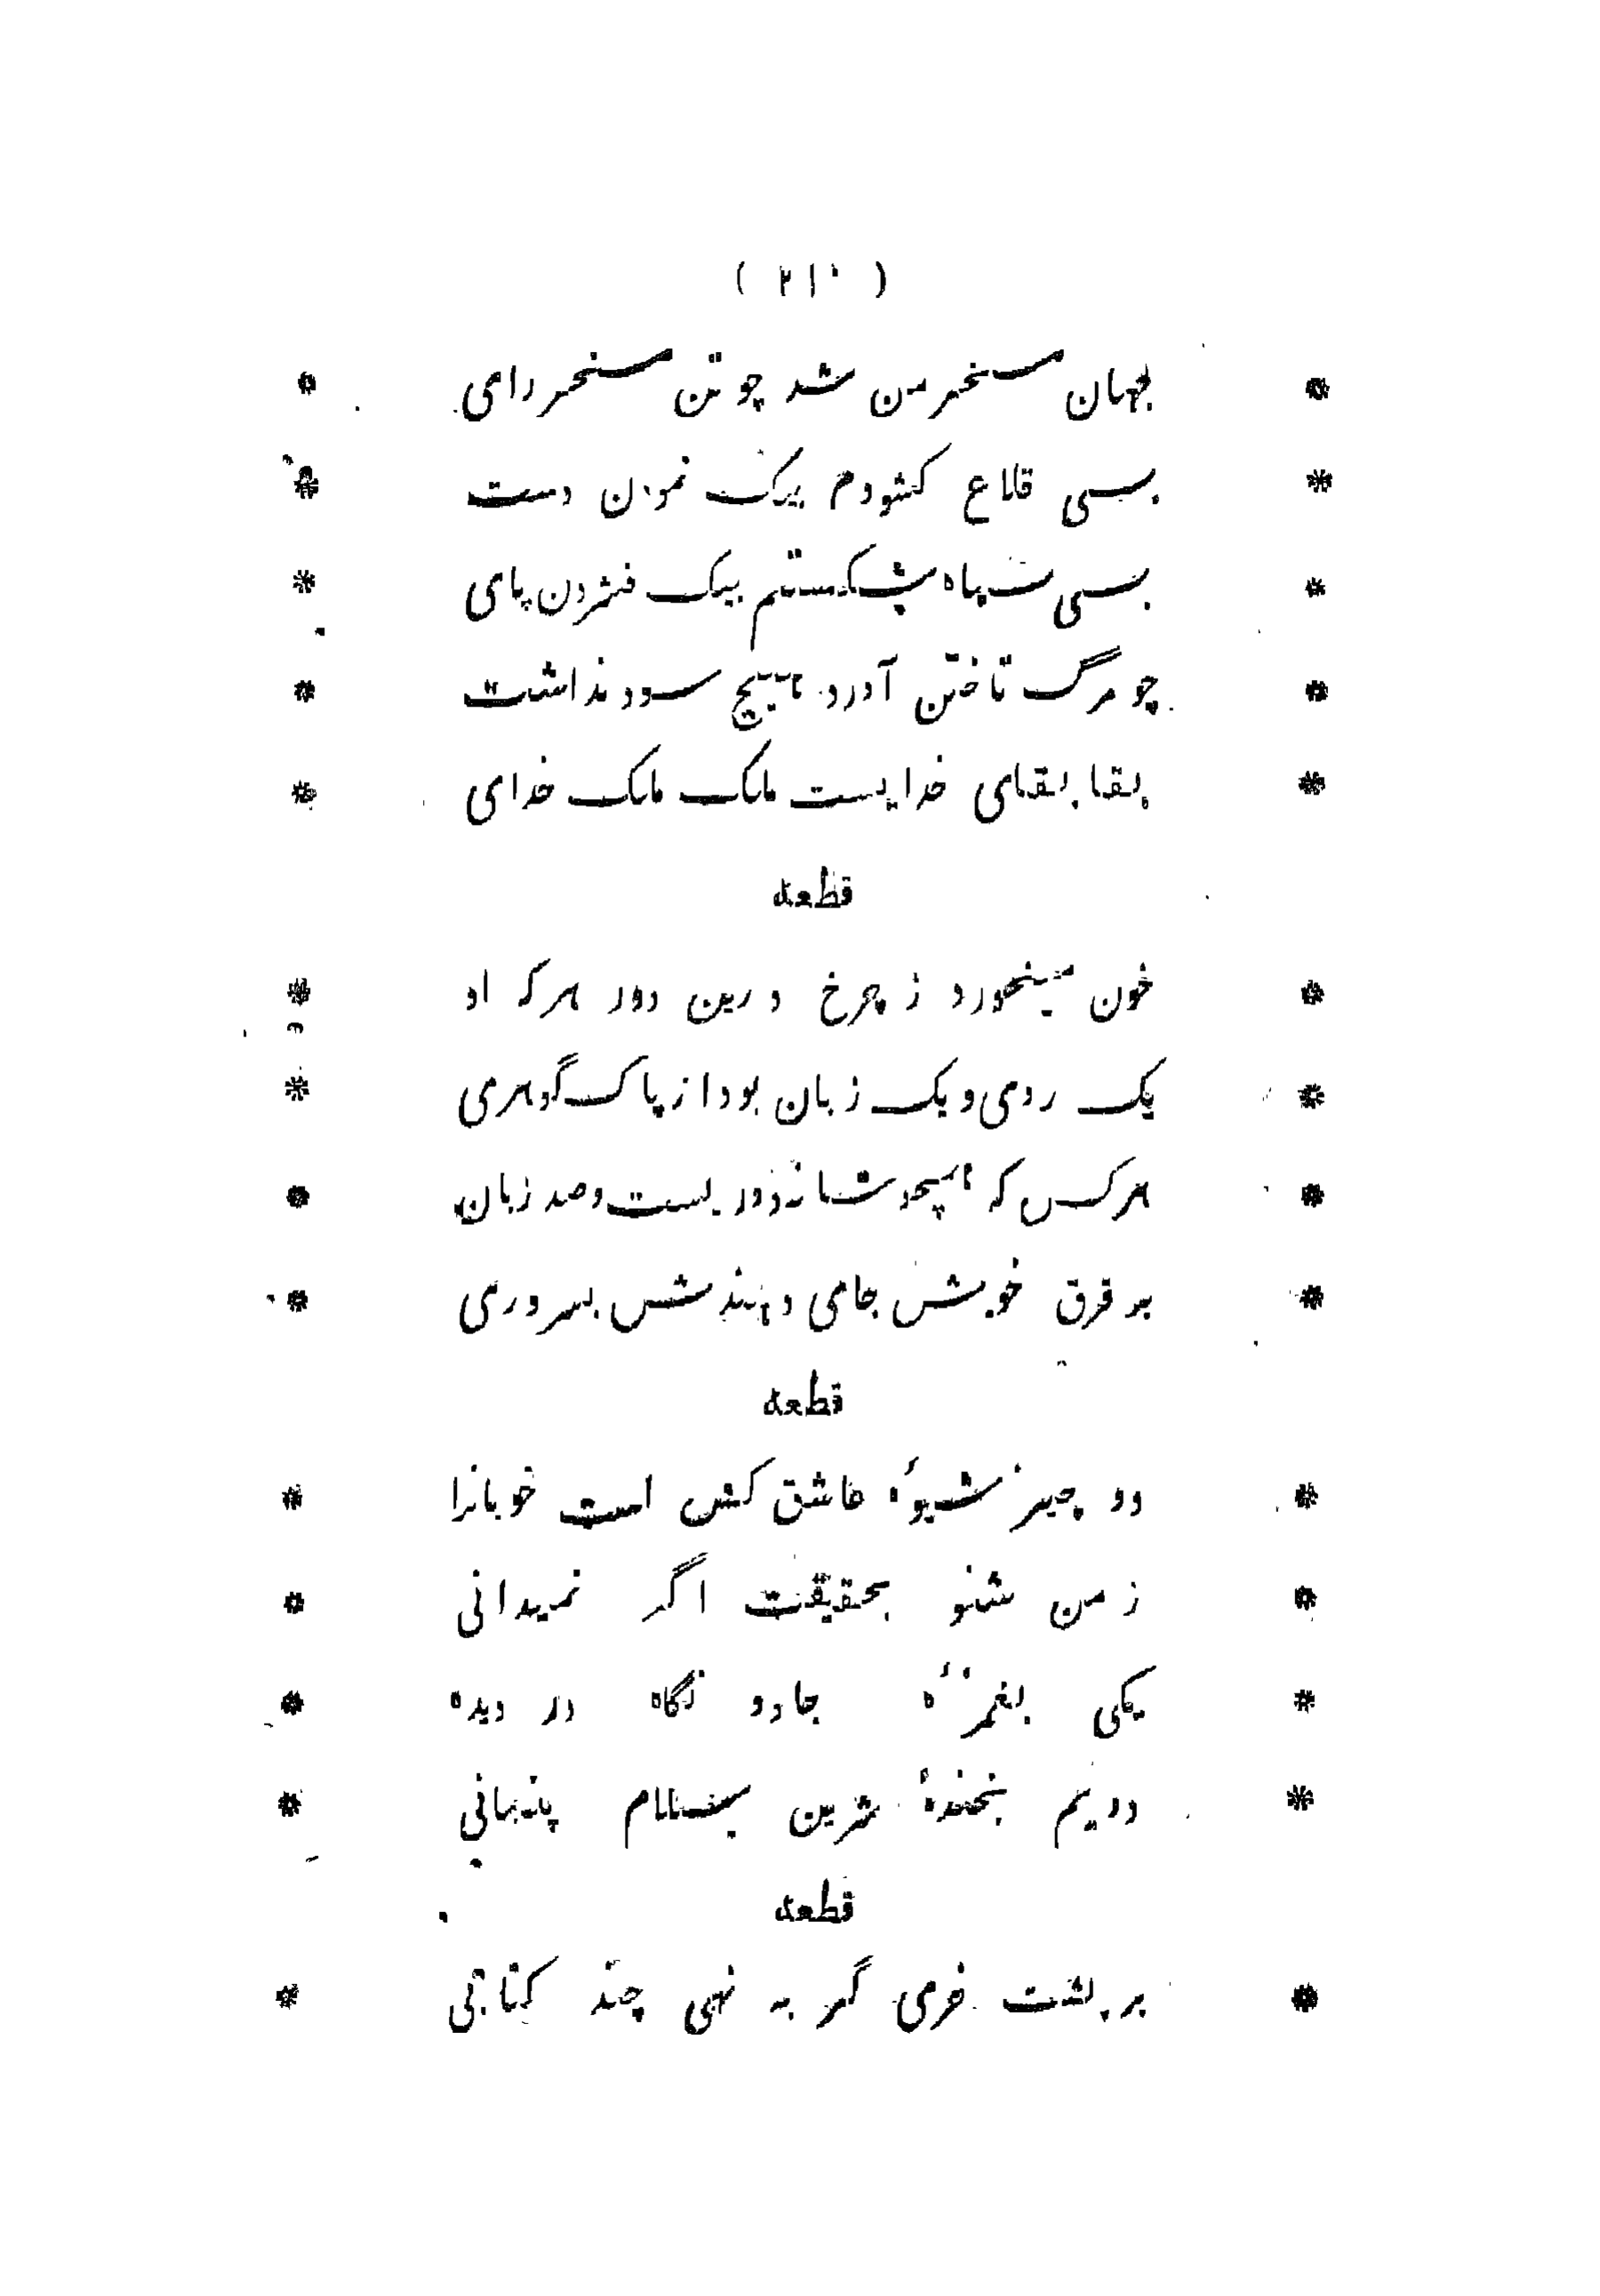 ( ۲۱۰ )
* جهان مسخر من شد چو تن مسخر رای *
* بسی قلاع کشودم بیک نمودن دست *
* بسی سپاه شکستم بیک فشردن پای *
* چو مرگ تاختن آورد هیچ سود نداشت *
* بقا بقای خدایست ملک ملک خدای *
قطعه
* خون میخورد ز چرخ درین دور هرکه او *
* یک روی و یک زبان بود از پاک گوهری *
* هر کس که همچو شانه دو رویست و صد زبان *
* بر فرق خویش جای دهندش بسروری *
قطعه
* دو چیز شیوهٔ عاشق کش است خوبانرا *
* ز من شنو بحقیقت اگر نمیدانی *
* یکی بغمزهٔ جادو نگاه در دیده *
* دویم بخندهٔ شرین سلام پنهانی *
قطعه
* بر پشت خری گر به نهی چند کتابی *